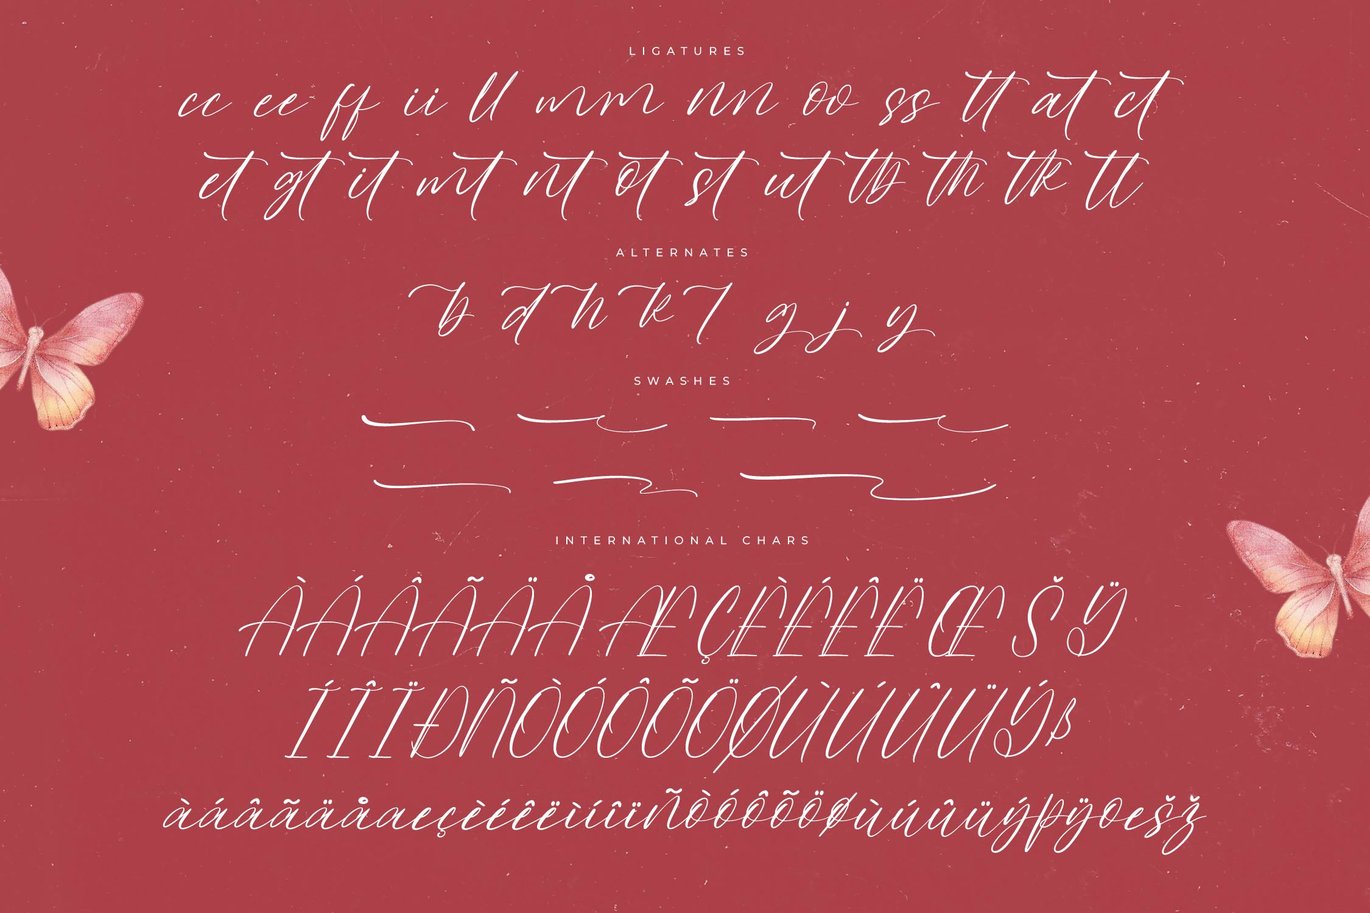 LIGATURES
cc ee ff ii ll mm nn oo ss tt at ct
et gt it mt nt ot st ut tb th tk tl
ALTERNATES
b d h k l g j y
SWASHES
INTERNATIONAL CHARS
ÀÁÂÃÄÅÆÇÈÉÊËŒŠŸ
ÍÎÏÐÑÒÓÔÕÖØÙÚÛÜÝß
àáâãäåæçèéêëìíîïñòóôõöøùúûüýþÿœšž